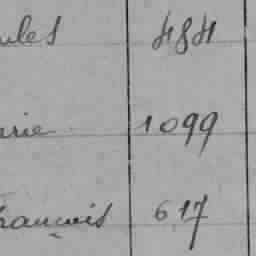 ules 484
arie 1099
François 617